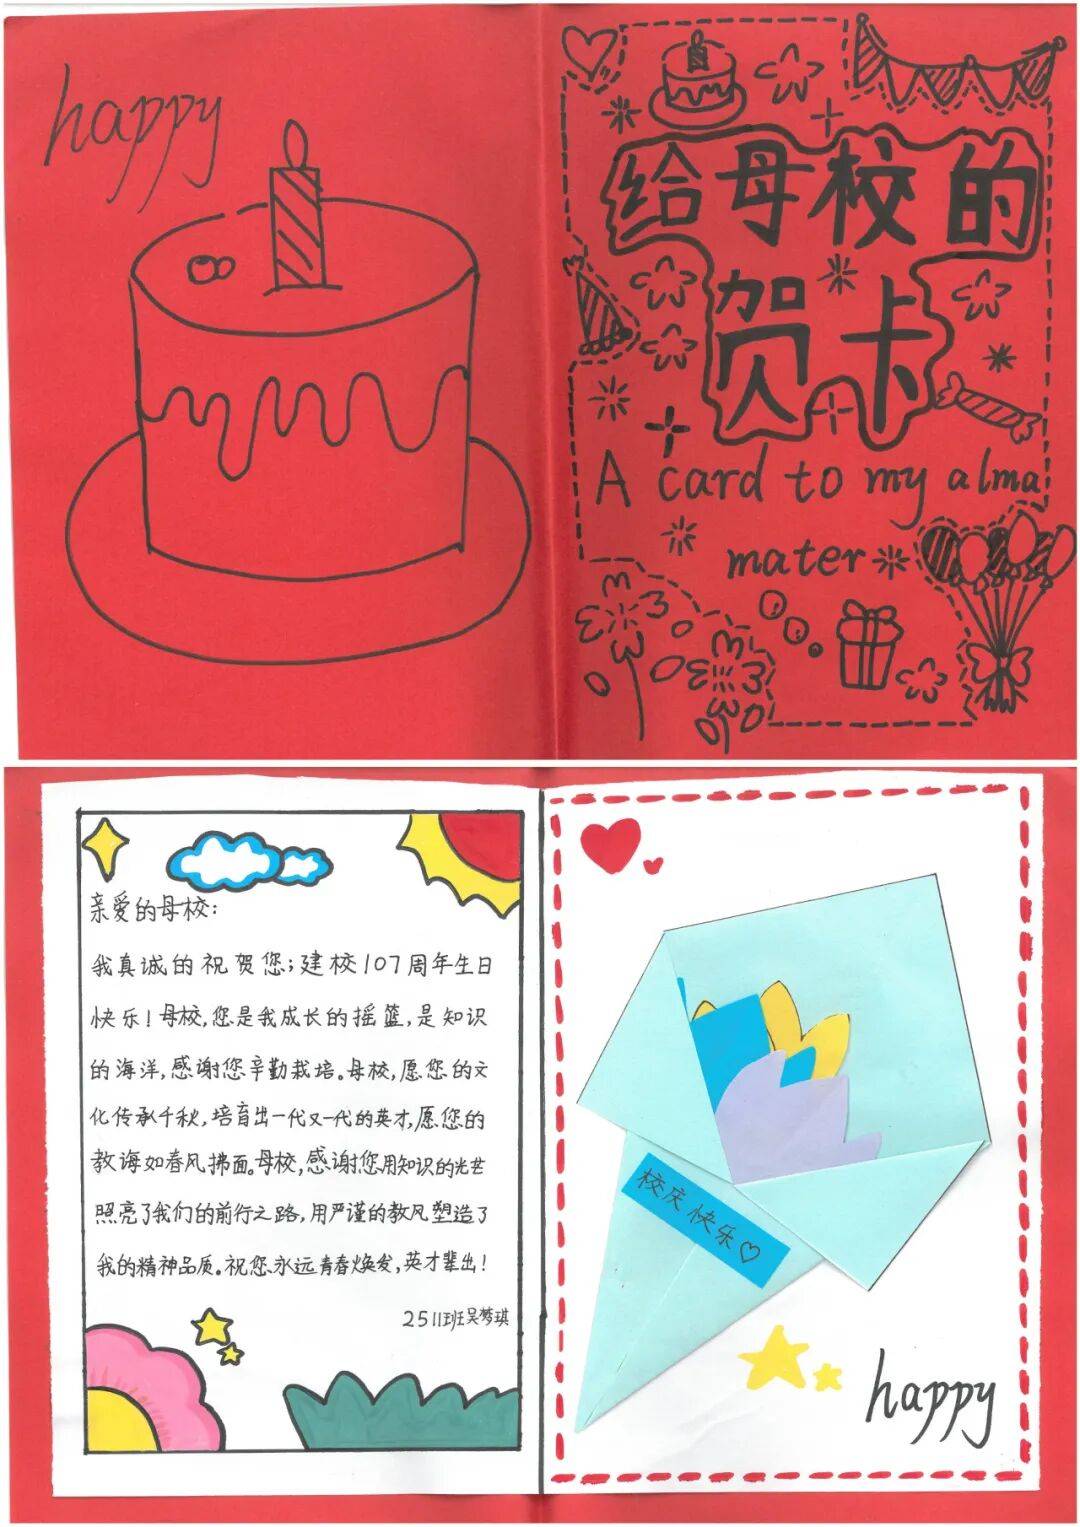 happy
给母校的
贺卡
A card to my alma
mater
亲爱的母校:
我真诚的祝贺您;建校107周年生日
快乐!母校,您是我成长的摇篮,是知识
的海洋,感谢您辛勤栽培。母校,愿您的文
化传承千秋,培育出一代又一代的英才,愿您的
教诲如春风拂面。母校,感谢您用知识的光芒
照亮了我们的前行之路,用严谨的教风塑造了
我的精神品质。祝您永远青春焕发,英才辈出!
2511班吴梦琪
校庆快乐♡
happy